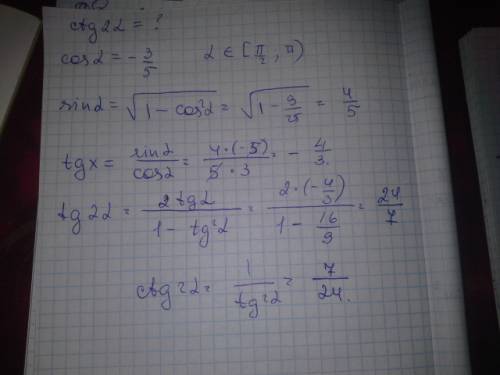 ctg2α = ?
cosα = -3/5 α ∈ [π/2, π)
sinα = √(1 - cos²α) = √(1 - 9/25) = 4/5
tgx = sinα/cosα = 4·(-5)/5·3 = -4/3.
tg2α = 2tgα/(1 - tg²α) = 2·(-4/3)/(1 - 16/9) = 24/7
ctg2α = 1/tg2α = 7/24.